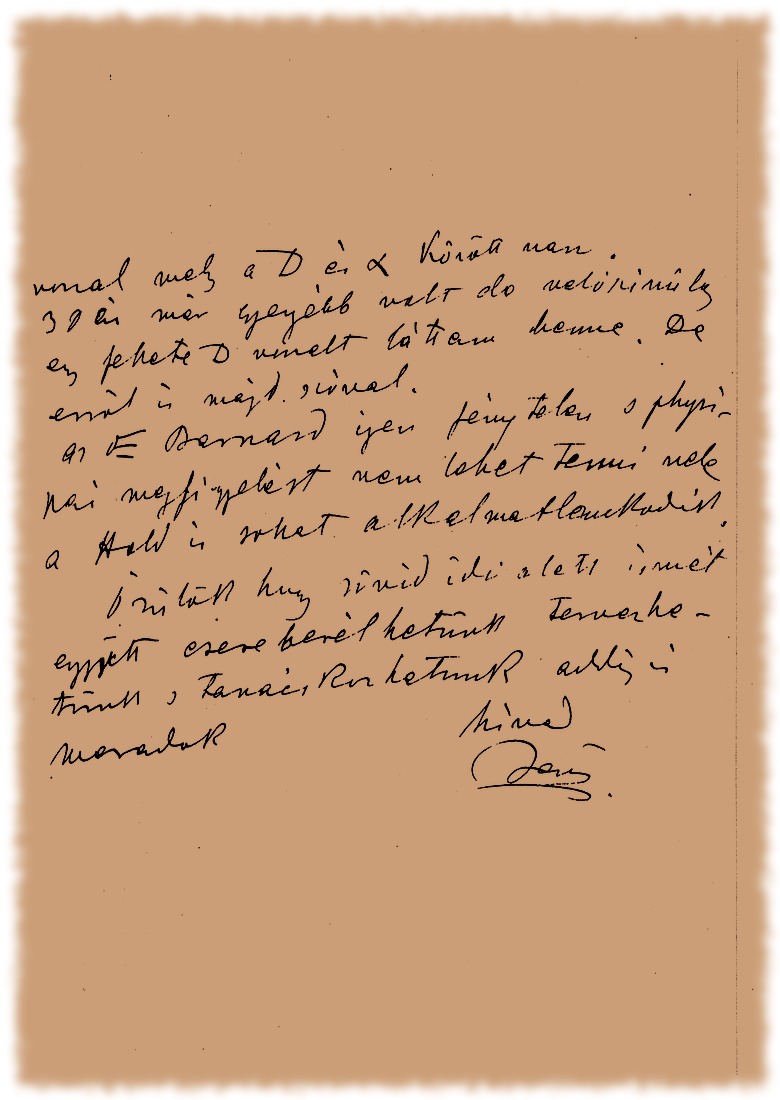 vonal mely a D és α között van.
30 án már egyébb volt de valószinűleg
egy fekete D vonalt láttam benne. De
erről is majd szóval.
az E Barnard igen fénytelen s physi-
kai megfigyelést nem lehet tenni vele
a Hold is sokat alkalmatlankodik.
Örülök hogy rövid idő alatt ismét
együtt eszcserebecsélhetünk tervezhe-
tünk s tanácskozhatunk addig is
maradok híved
Jenő.